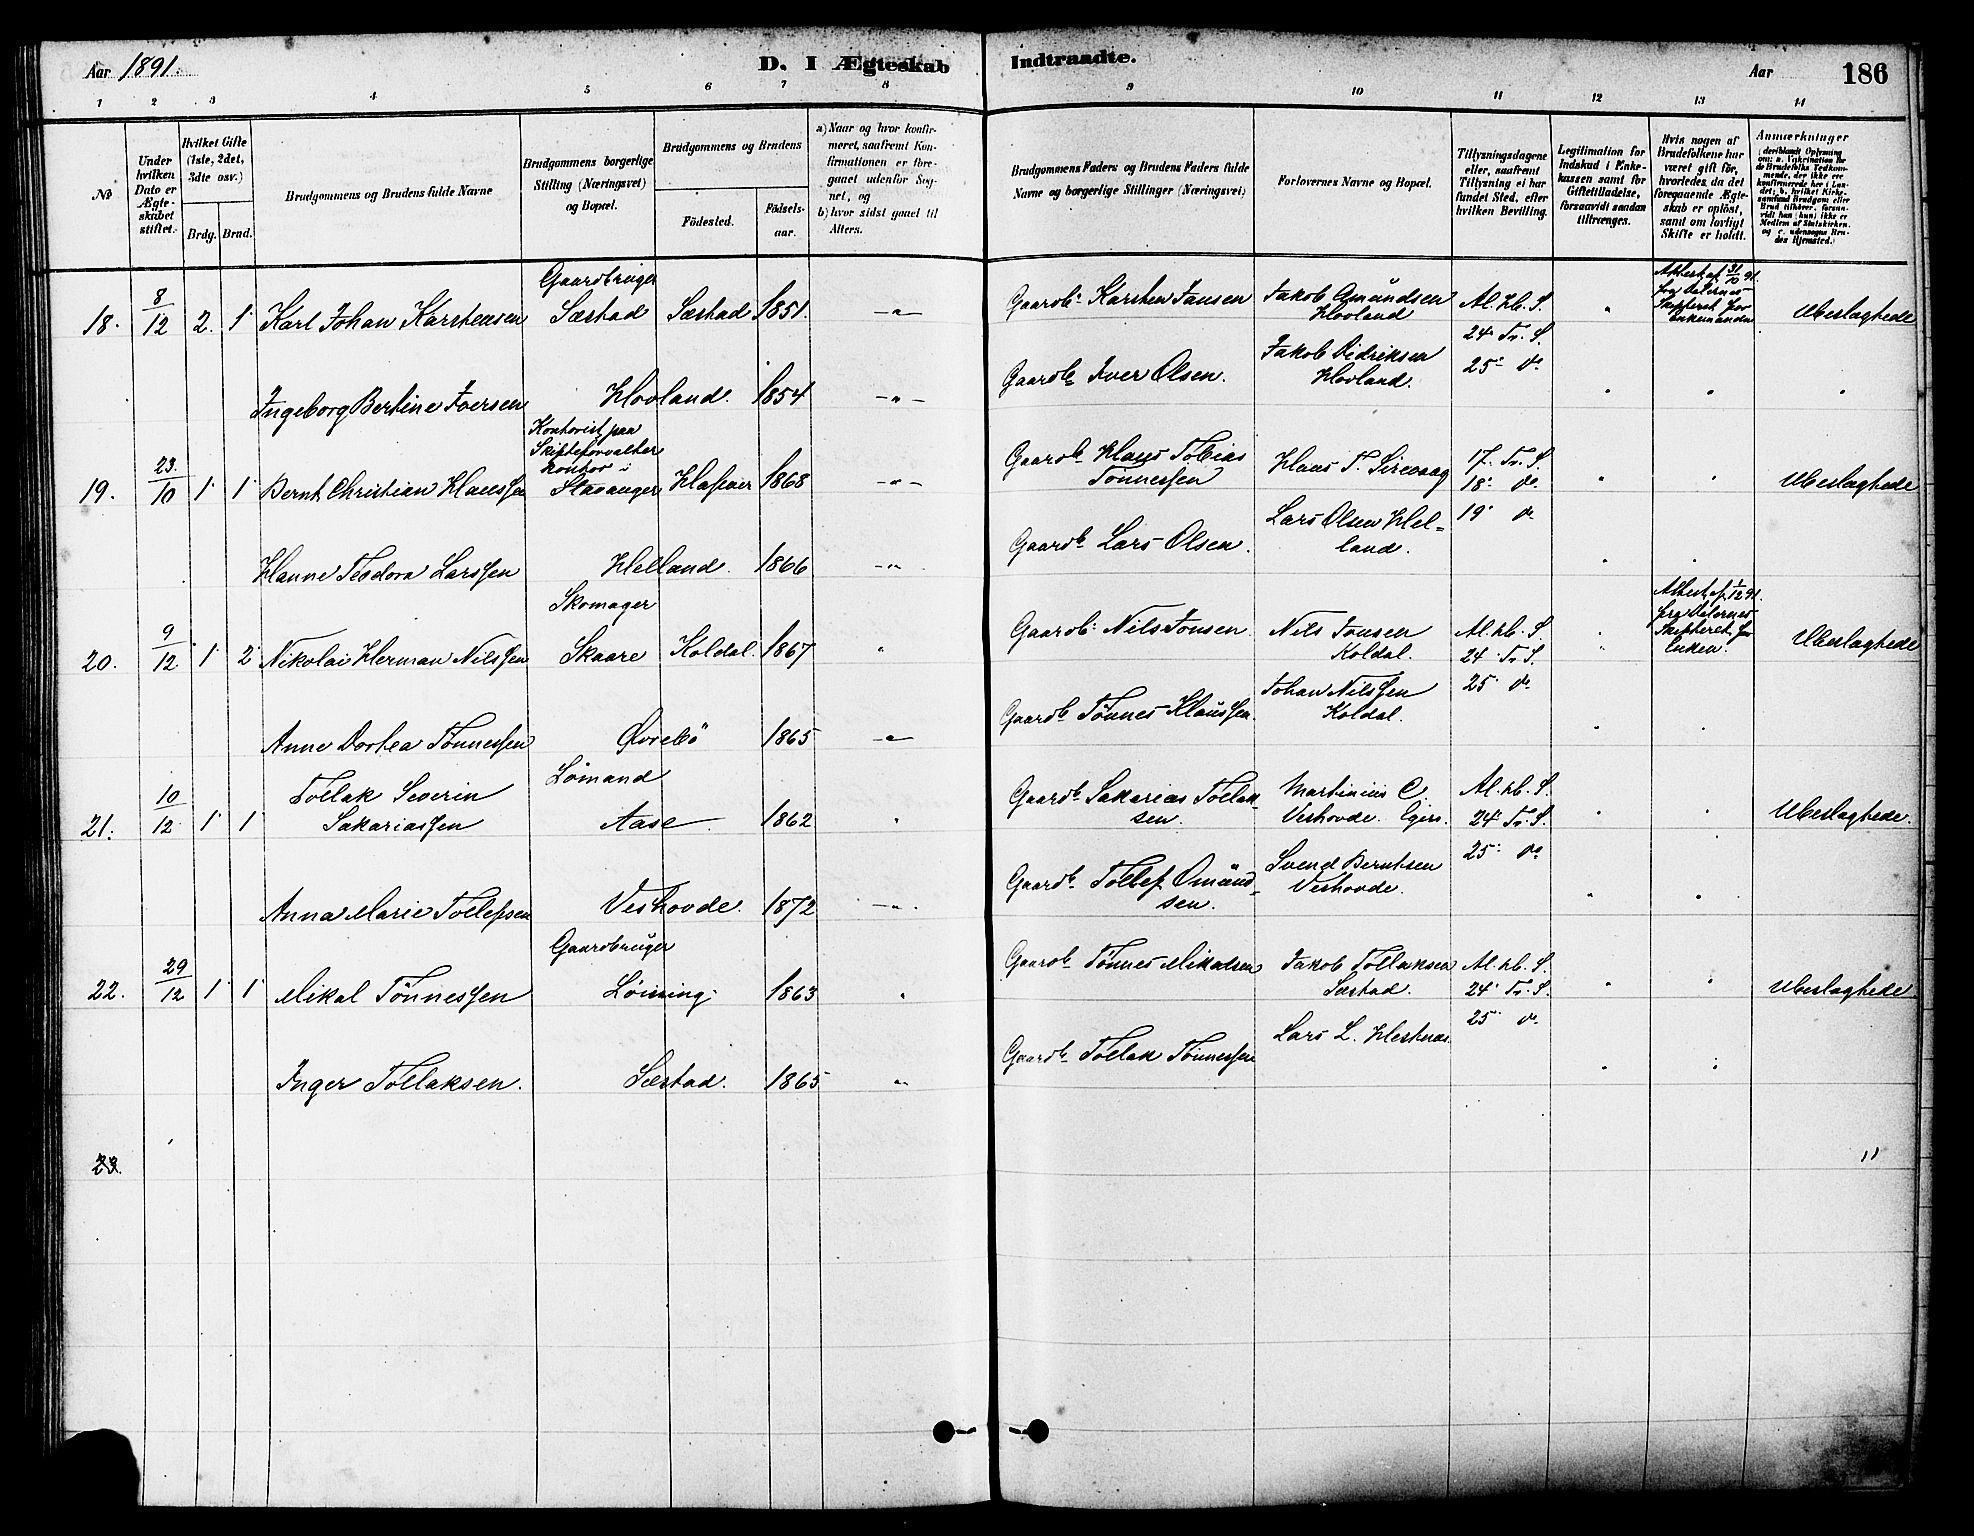 Aar 1891.
D. I Ægteskab
Indtraadte.
Aar
186
1 2 3 4 5 6 7 8 9 10 11 12 13 14
No
Under hvilken Dato er Ægteskabet stiftet.
Hvilket Gifte (1ste, 2det, 3dte osv.)
Brdg. Brud.
Brudgommens og Brudens fulde Navne
Brudgommens borgerlige Stilling (Næringsvei) og Bopæl.
Brudgommens og Brudens
Födested.
Födselsaar.
a) Naar og hvor konfirmeret, saafremt Konfirmationen er foregaaet udenfor Sognet, og
b) hvor sidst gaaet til Alters.
Brudgommens Faders og Brudens Faders fulde Navne og borgerlige Stillinger (Næringsvei)
Forlovernes Navne og Bopæl.
Tillysningsdagene eller, saafremt Tillysning ei har fundet Sted, efter hvilken Bevilling.
Legitimation for Indskud i Enkekassen samt for Giftetilladelse, forsaavidt saadan tiltrænges.
Hvis nogen af Brudefolkene har været gift för, hvorledes da det foregaaende Ægteskab er oplöst, samt om lovligt Skifte er holdt.
Anmærkninger
(deriblandt Oplysning om: a. Vakcination for de Brudefolks Vedkommende, der ikke ere konfirmerede her i Landet; b. hvilket Kirkesamfund Brudgom eller Brud tilhörer, forsaavidt han (hun) ikke er Medlem af Statskirken, og c. udensogns Brudes Hjemsted.)
18. 8/12 2. 1 Karl Johan Karstensen
Gaardbruger
Sæstad Sæstad 1851 -"-
Gaardb. Karsten Jansen
Jakob Amundsen
Hovland
Al. hb. S.
24 Tr. S.
25 do
Attest af 31/10 91.
fra Dalernes
Skifteret for
Enkemanden
Ubeslægtede
Ingeborg Bertine Iversen Hovland. 1854 -"-
Gaardb. Iver Olsen.
Jakob Didriksen
Hovland.
19. 23/10 1 1 Bernt Christian Klaussen
Kontorist paa
Skifteforvalter
kontor i
Stavanger 1868 -"-
Gaardb. Klaus Tobias
Tønnessen
Klaus T. Sirevaag
17. Tr. S.
18. do
19 do
Ubeslægtede
Hanne Teodora Larssen Helland. 1866 -"-
Gaardb. Lars Olsen.
Lars Olsen Hel-
land.
20. 9/12 1 2 Nikolai Herman Nilssen
Skomager
Skaare Koldal. 1867 "
Gaardb. Nils Jonsen.
Nils Jonsen
Koldal.
Al. hb. S.
24 Tr. S.
25 do
Attest af 1/12 91.
fra Dalernes
Skifteret for
Enken.
Ubeslægtede
Anne Dortea Tønnessen Øvrebø 1865 -"-
Gaardb. Tønnes Klaussen.
Johan Nilssen
Koldal.
21. 10/12 1 1 Tollak Severin
Sakariassen
Lømand
Aase 1862 "
Gaardb. Sakarias Tollak-
sen.
Martinius C.
Veshovde. Egers.
Al. hb. S.
24 Tr. S.
25 do
Ubeslægtede.
Anna Marie Tollefsen Veshovde. 1872 -"-
Gaardb. Tollef Omund-
sen.
Svend Berntsen
Veshovde.
22. 29/12 1 1 Mikal Tønnessen
Gaardbruger
Løining 1863 "
Gaardb. Tønnes Mikalsen
Jakob Tollaksen
Sæstad.
Al. hb. S.
24 Tr. S.
25 do
Ubeslægtede
Inger Tollaksen. Sæstad. 1865 "
Gaardb. Tollak Tønnessen
Lars L. Hestnæs.
23.